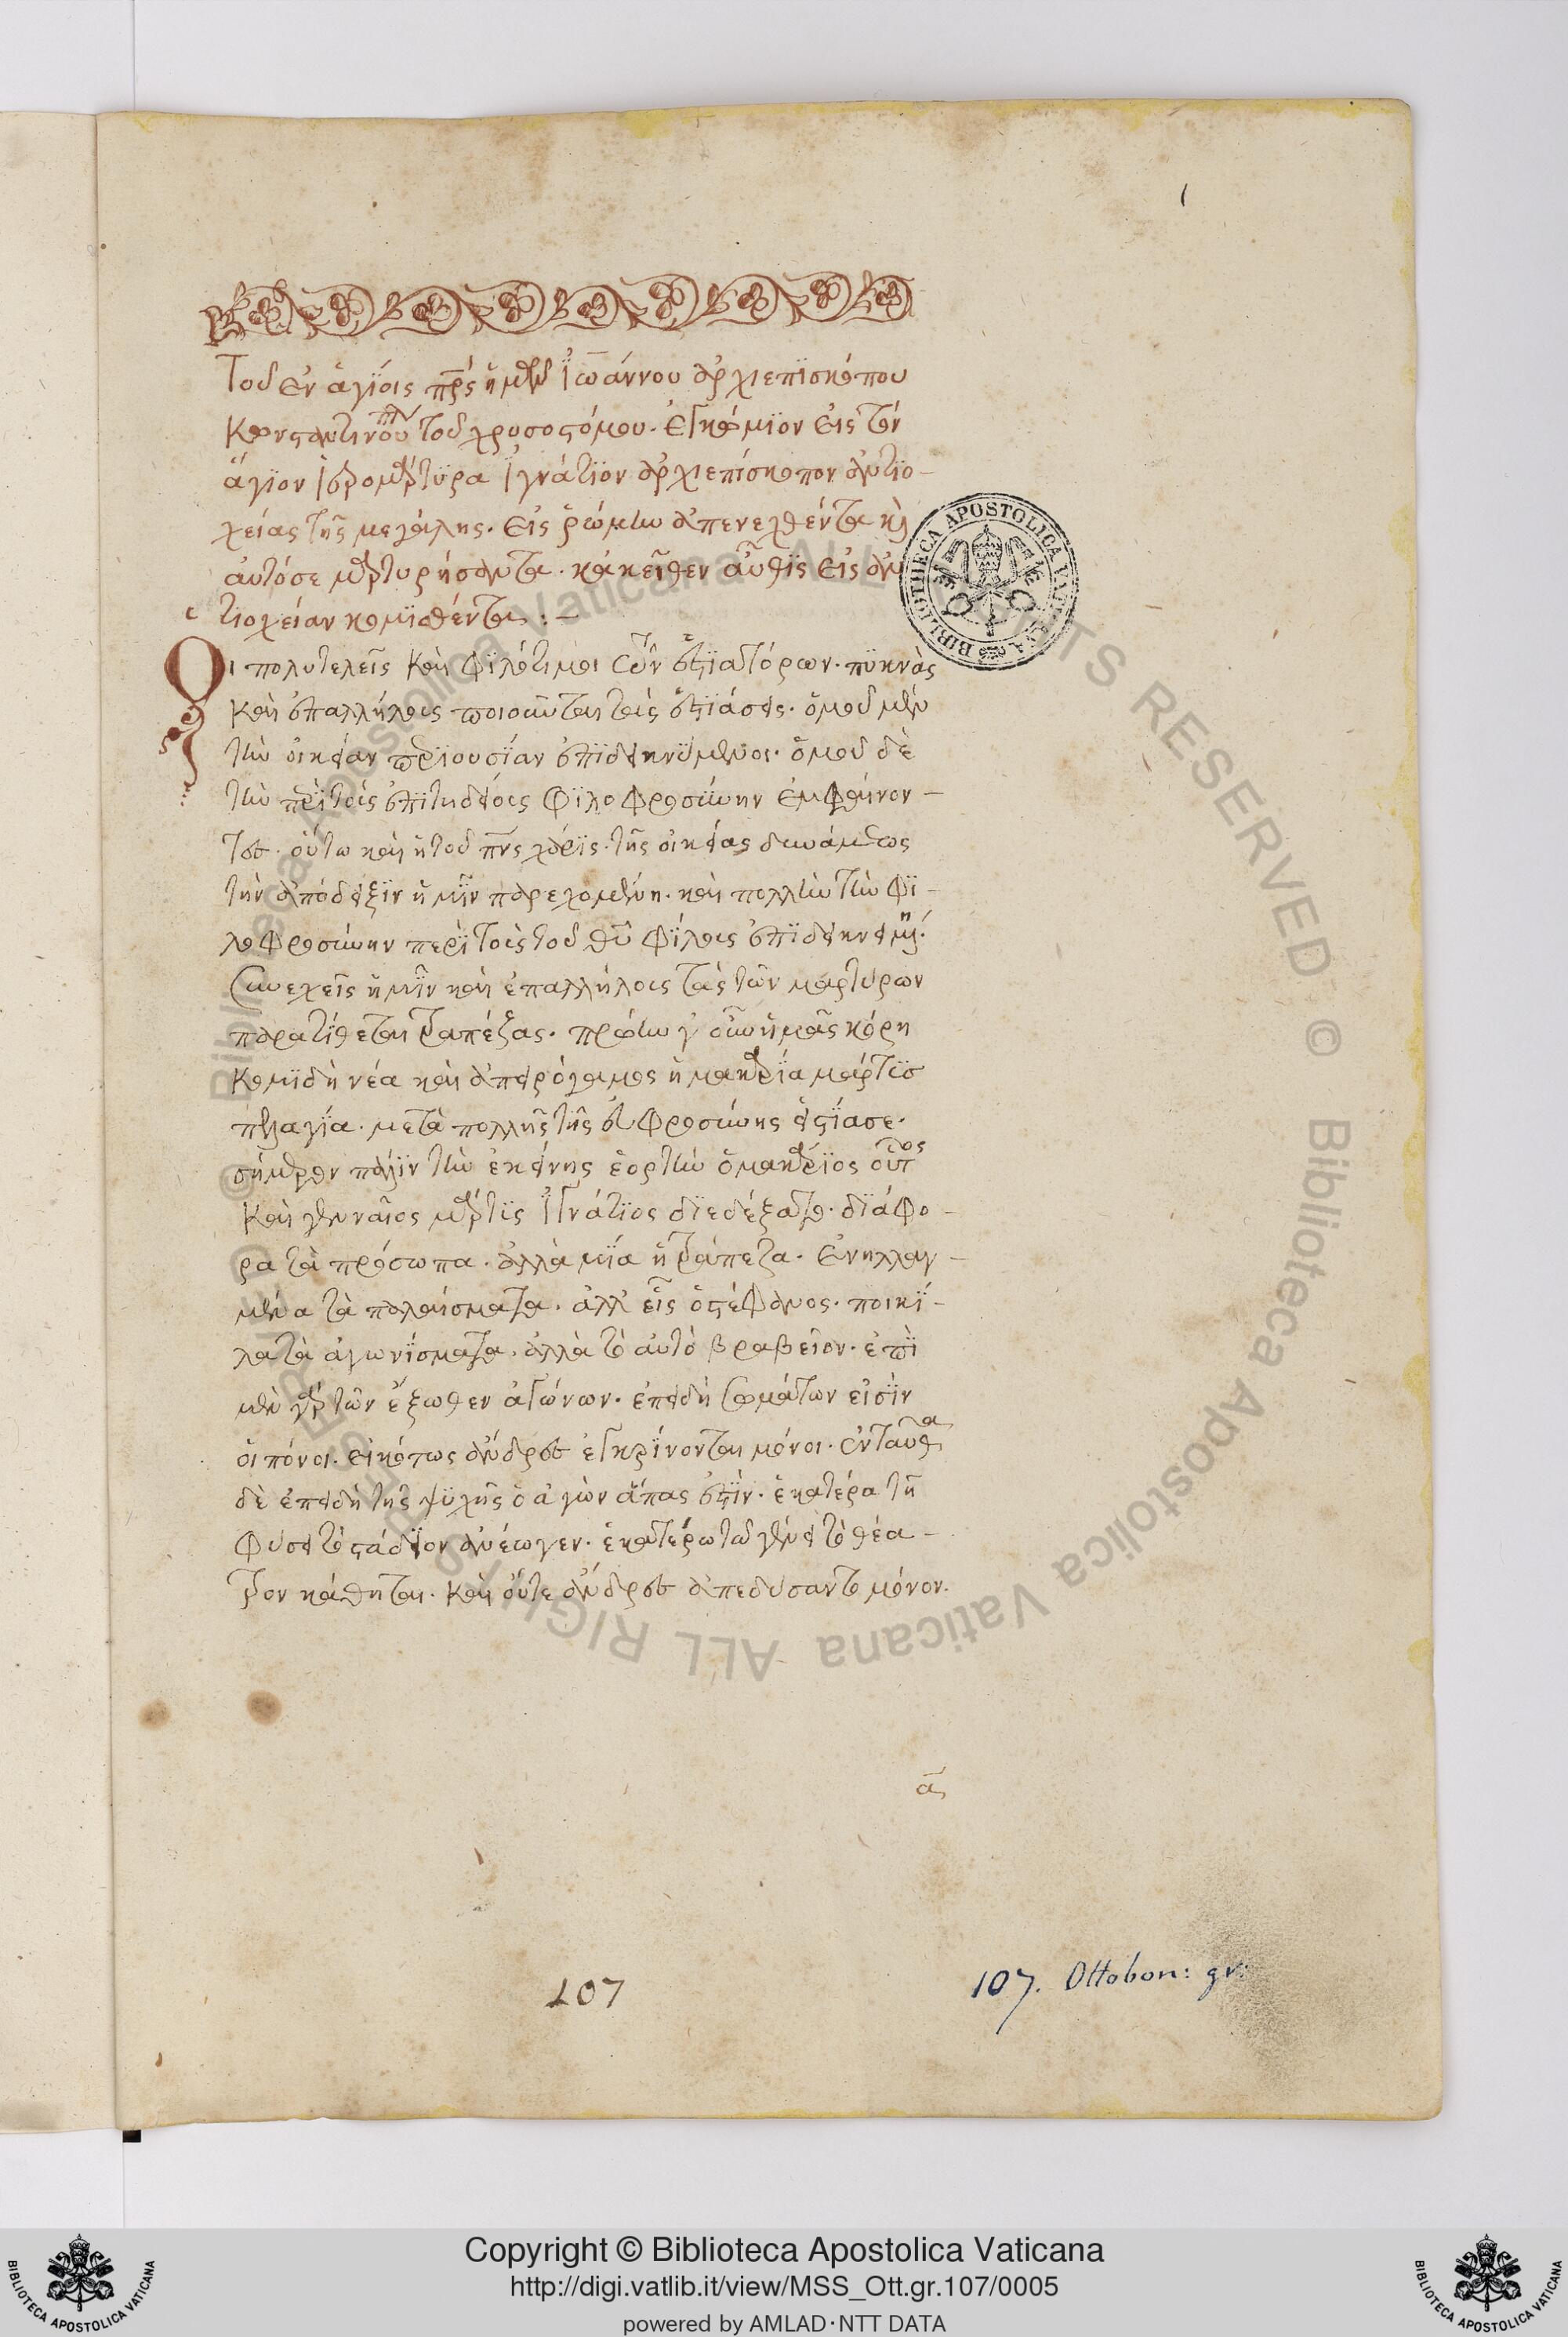 1
Τοῦ ἐν ἁγίοις πρς ἡμῶν Ἰωάννου ἀρχιεπισκόπου
Κωνσταντινουπλ τοῦ χρυσοστόμου. ἐγκώμιον εἰς τὸν
ἅγιον ἱερομάρτυρα ἰγνάτιον ἀρχιεπίσκοπον ἀντιο-
χείας τῆς μεγάλης. εἰς ῥώμην ἀπενεχθέντα κὶ
αὐτόσε μαρτυρήσαντα. κἀκεῖθεν αὖθις εἰς ἀν
τιοχείαν κομισθέντα :-
Οἱ πολυτελεῖς καὶ φιλότιμοι τῶν ἑστιατόρων. πυκνὰς
καὶ ἐπαλλήλους ποιοῦνται τὰς ἑστιάσεις. ὁμοῦ μὲν
τὴν οἰκείαν περιουσίαν ἐπιδεικνύμενοι. ὁμοῦ δὲ
τὴν περὶ τοὺς ἐπιτηδείους φιλοφροσύνην ἐμφαίνον-
τες. οὕτω καὶ ἡ τοῦ πνς χάρις. τῆς οἰκείας δυνάμεως
τὴν ἀπόδειξιν ἡμῖν παρεχομένη. καὶ πολλὴν τὴν φι-
λοφροσύνην περὶ τοὺς τοῦ θῦ φίλους ἐπιδεικνυμένη.
συνεχεῖς ἡμῖν καὶ ἐπαλλήλους τὰς τῶν μαρτύρων
παρατίθεται τραπέζας. πρώην γοῦν ἡμᾶς κόρη
κομιδῆ νέα καὶ ἀπειρόγαμος ἡ μακαρία μάρτυς
πελαγία. μετὰ πολλῆς τῆς εὐφροσύνης εἱστίασε.
σήμερον πάλιν τὴν ἐκείνης ἑορτὴν ὁ μακάριος οὗτος
καὶ γενναῖος μάρτυς Ἰγνάτιος διεδέξατο. διάφο-
ρα τὰ πρόσωπα. ἀλλὰ μία ἡ τράπεζα. ἐνηλλαγ-
μένα τὰ παλαίσματα. ἀλλ' εἷς ὁ στέφανος. ποικί-
λα τὰ ἀγωνίσματα. ἀλλὰ τὸ αὐτὸ βραβεῖον. ἐπὶ
μὲν γὰρ τῶν ἔξωθεν ἀγώνων. ἐπειδὴ σωμάτων εἰσὶν
οἱ πόνοι. εἰκότως ἄνδρες ἐγκρίνονται μόνοι. ἐνταῦθα
δὲ ἐπειδὴ τῆς ψυχῆς ὁ ἀγὼν ἅπας ἐστὶν. ἑκατέρα τῇ
φύσει τὸ στάδιον ἀνέωγεν. ἑκατέρω τῶ γένει τὸ θέα-
τρον κάθηται. καὶ οὔτε ἄνδρες ἀπεδύσαντο μόνον.
α
107
107. Ottobon: gr:
BIBLIOTHECA APOSTOLICA VATICANA
© Biblioteca Apostolica Vaticana ALL RIGHTS RESERVED
Copyright © Biblioteca Apostolica Vaticana
http://digi.vatlib.it/view/MSS_Ott.gr.107/0005
powered by AMLAD·NTT DATA
BIBLIOTECA APOSTOLICA VATICANA
BIBLIOTECA APOSTOLICA VATICANA